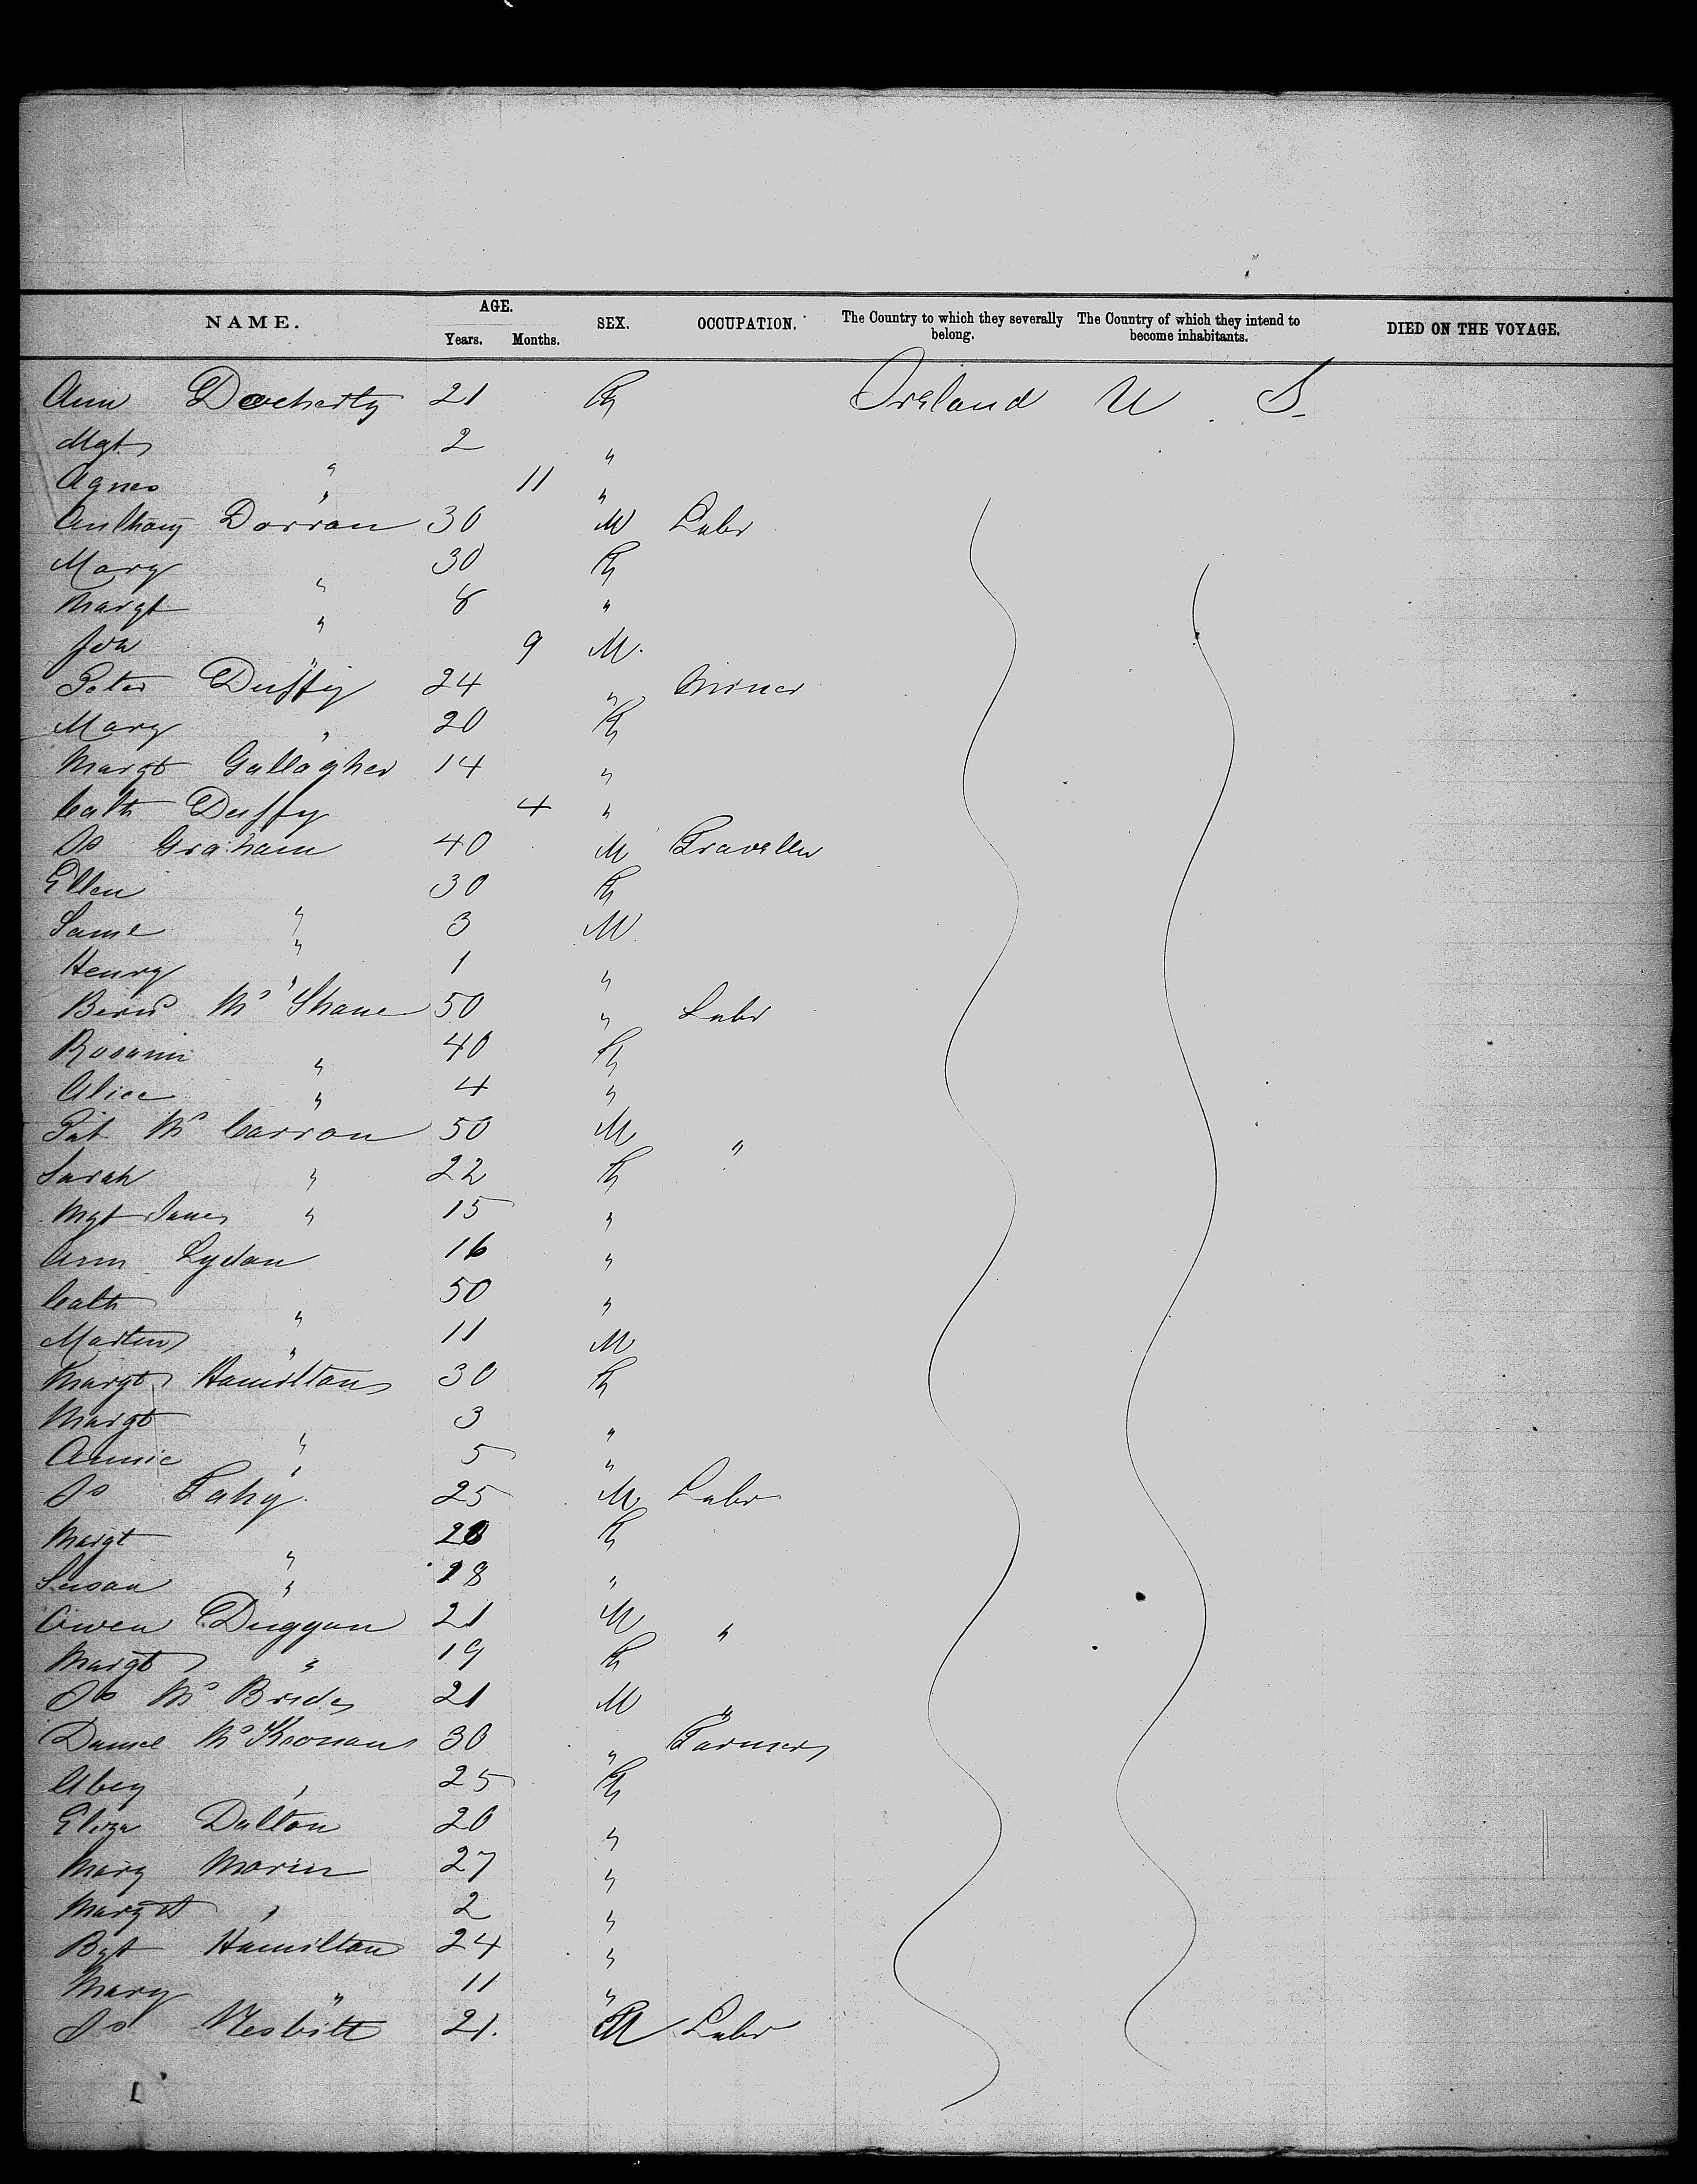 NAME. AGE. Years. Months. SEX. OCCUPATION. The Country to which they severally belong. The Country of which they intend to become inhabitants. DIED ON THE VOYAGE.
Ann Docherty 21 F Ireland U. S.
Mgt " 2 "
Agnes " 11 "
Anthony Dorran 30 M Labr
Mary " 30 F
Margt " 8 "
Jon " 9 M.
Peter Duffy 24 " Miner
Mary " 20 F
Margt Gallagher 14 "
Cath Duffy 4 "
Js Graham 40 M Traveller
Ellen " 30 F
Saml " 3 M
Henry " 1 "
Bernd Mc Shane 50 " Labr
Rosann " 40 F
Alice " 4 "
Pat Mc Carron 50 M "
Sarah " 22 F
Mgt Jane " 15 "
Ann Lydon 16 "
Cath " 50 "
Martin " 11 M
Margt Hamilton 30 F
Margt " 3 "
Annie " 5 "
Js Fahy 25 M Labr
Margt " 20 F
Susan " 18 "
Owen Duggan 21 M "
Margt " 19 F
Js Mc Bride 21 M "
Daniel Mc Kronan 30 " Farmer
Abey " 25 F
Eliza Dalton 20 "
Mary Morin 27 "
Margt " 2 "
Bgt Hamilton 24 "
Mary " 11 "
Js Nesbitt 21. M Labr